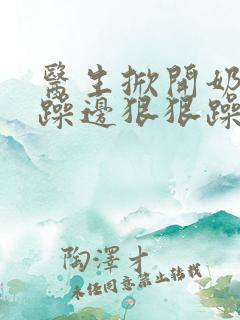 醫生掀開奶
躁邊狠狠躁
陶澤才
未經同意禁止轉載